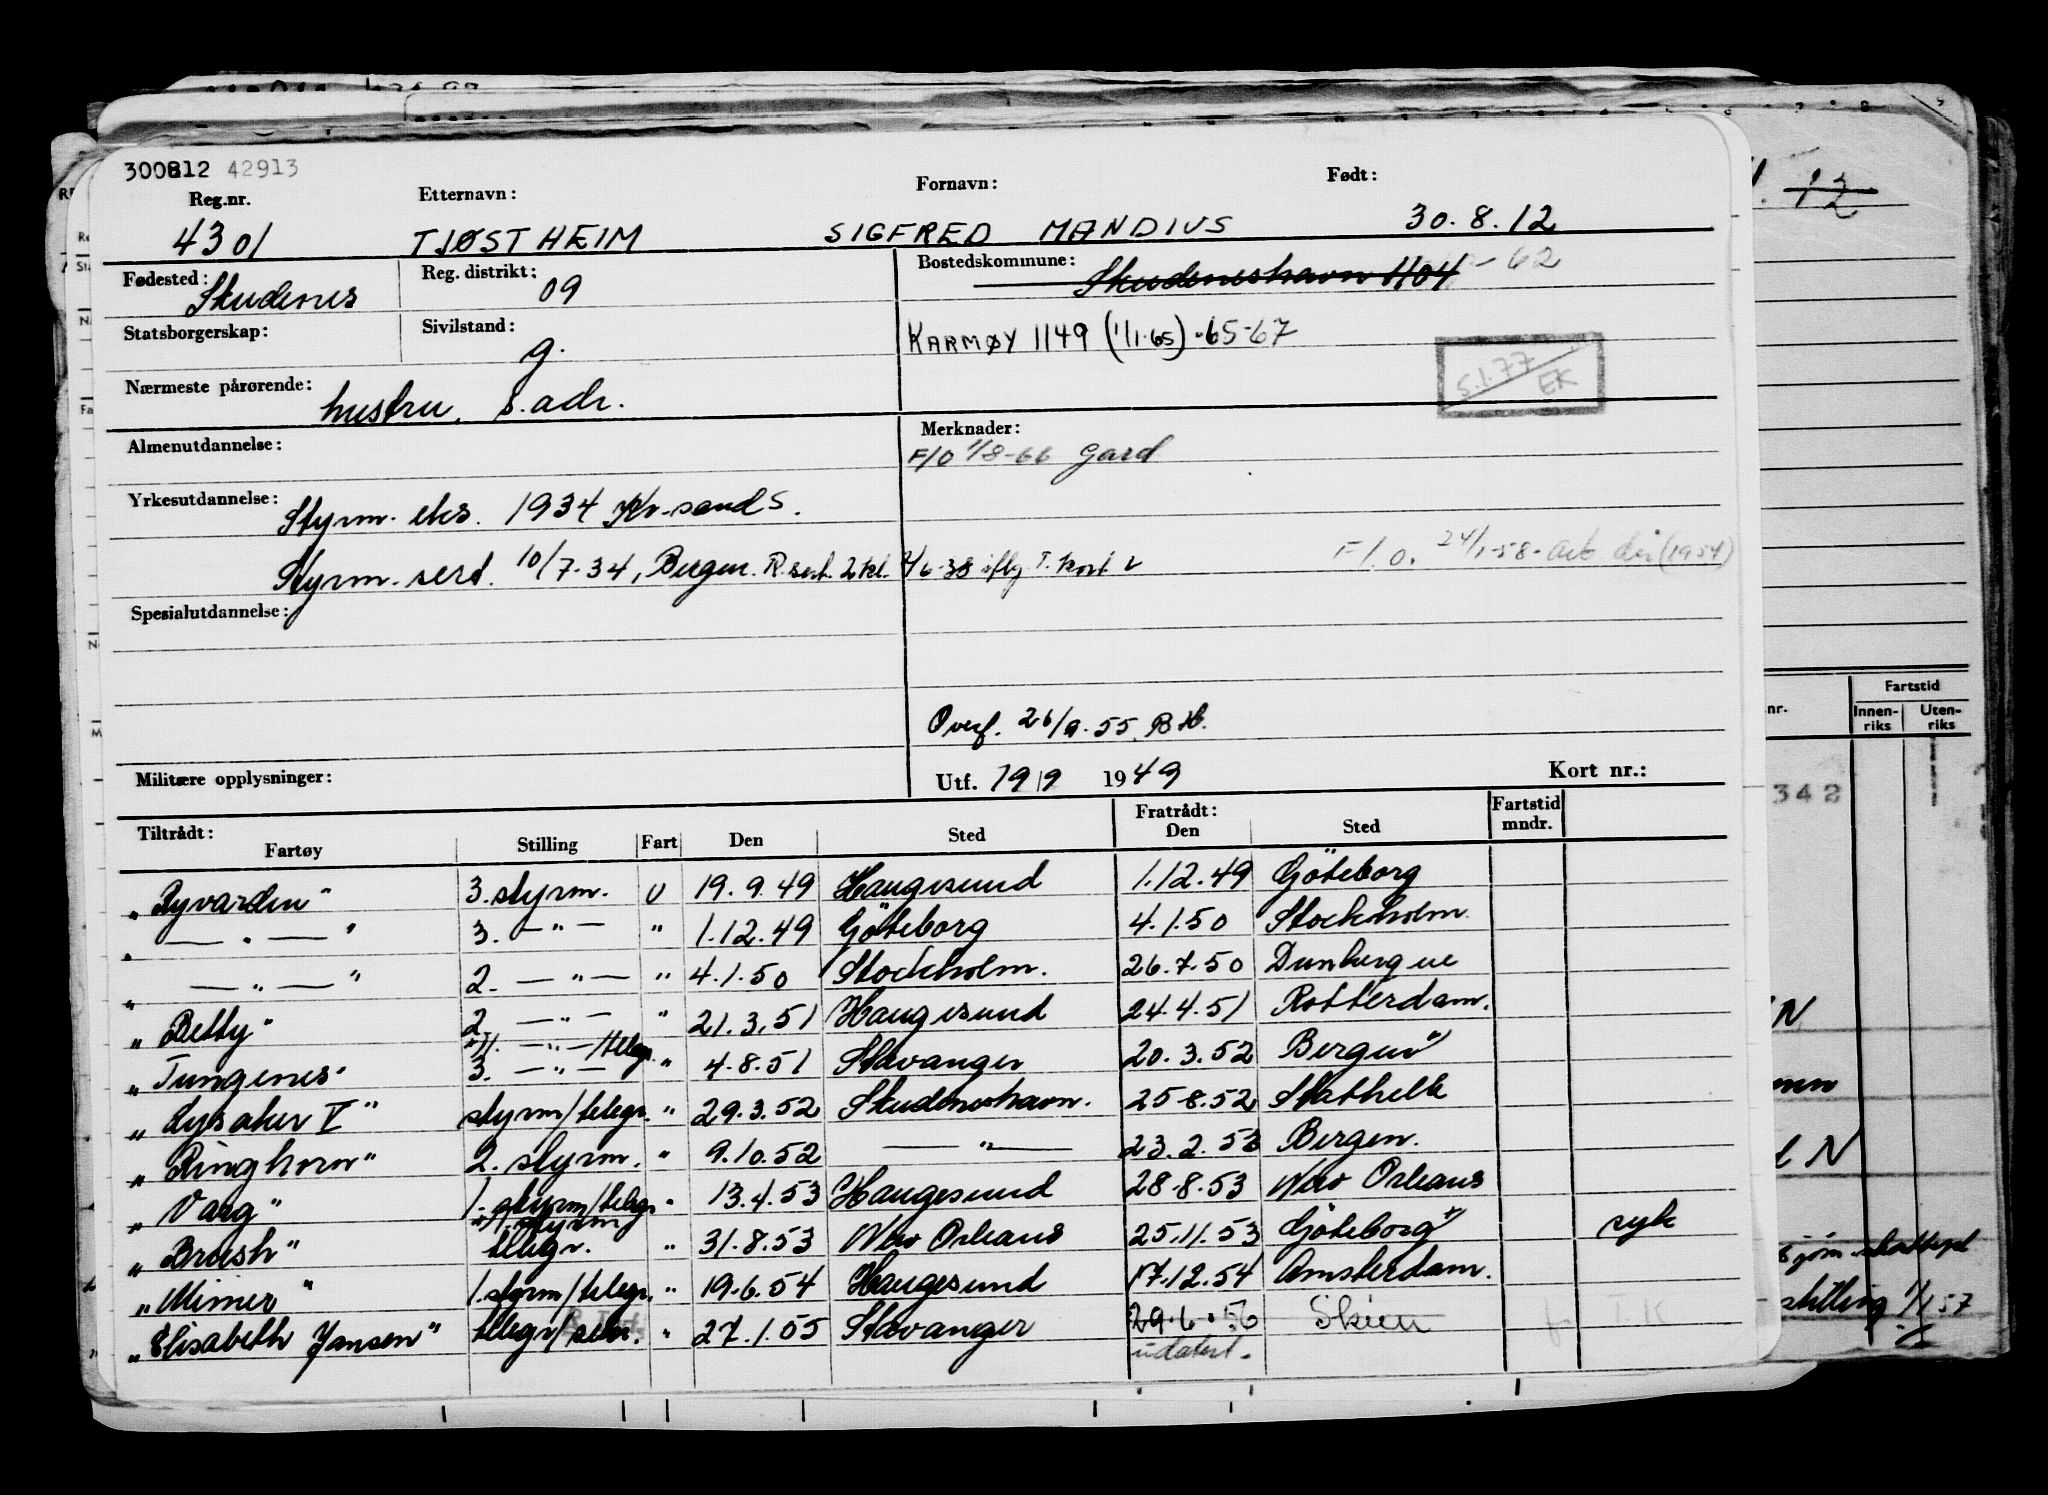 300812 42913
Reg.nr. Etternavn: Fornavn: Født:
4301 TJØSTHEIM SIGFRED MANDIUS 30.8.12
Fødested: Skudenes Reg. distrikt: 09 Bostedskommune: Skudeneshavn 1104 - 62
Statsborgerskap: Sivilstand: g. KARMØY 1149 (1/1-65) -65-67
S.1.77 EK
Nærmeste pårørende: hustru, s. adr.
Almenutdannelse: Merknader:
F/O 1/8-66 Gard
Yrkesutdannelse: Styrm. eks. 1934 Kr-sand S.
Styrm. sert. 10/7-34, Bergen. R.sert. 2 kl. 2/6-38 iflg. T. kort F/O. 24/1-58-
Spesialutdannelse:
Overf. 26/9-55. B H.
Militære opplysninger: Utf. 19/9 1949 Kort nr.:
Tiltrådt: Fartøy Stilling Fart Den Sted Fratrådt: Den Sted Fartstid mndr.
"Ryvarden" 3. styrm. U 19.9.49 Haugesund 1.12.49 Göteborg
— " — " 3. — " — " 1.12.49 Göteborg 4.1.50 Stockholm
" — " — " 2. — " — " 4.1.50 Stockholm. 26.7.50 Dunkerque
"Betty" 2 — " — " 21.3.51 Haugesund 24.4.51 Rotterdam.
"Tungenes" 3. — " — /telegr. " 4.8.51 Stavanger 20.3.52 Bergen
"Lysaker V" styrm/telegr. " 29.3.52 Skudeneshavn. 25-8.52 Stathelle
"Ringhorn" 2. styrm. " 9.10.52 — " — 23.2.53 Bergen.
"Varg" 1. styrm/telegr " 13.4.53 Haugesund 28-8.53 New Orleans
"Brush" styrm telegr. " 31.8.53 New Orleans 25.11.53 Göteborg syk
"Mimer" 1. styrm/telegr. " 19.6.54 Haugesund 17.12.54 Amsterdam.
"Elisabeth Jansen" telegr/sekr. " 27.1.55 Stavanger 29.6.56 Skien T.K
udatert.
12
Fartstid
nr. Innenriks Utenriks
342
N
N
stilling 1/1 57